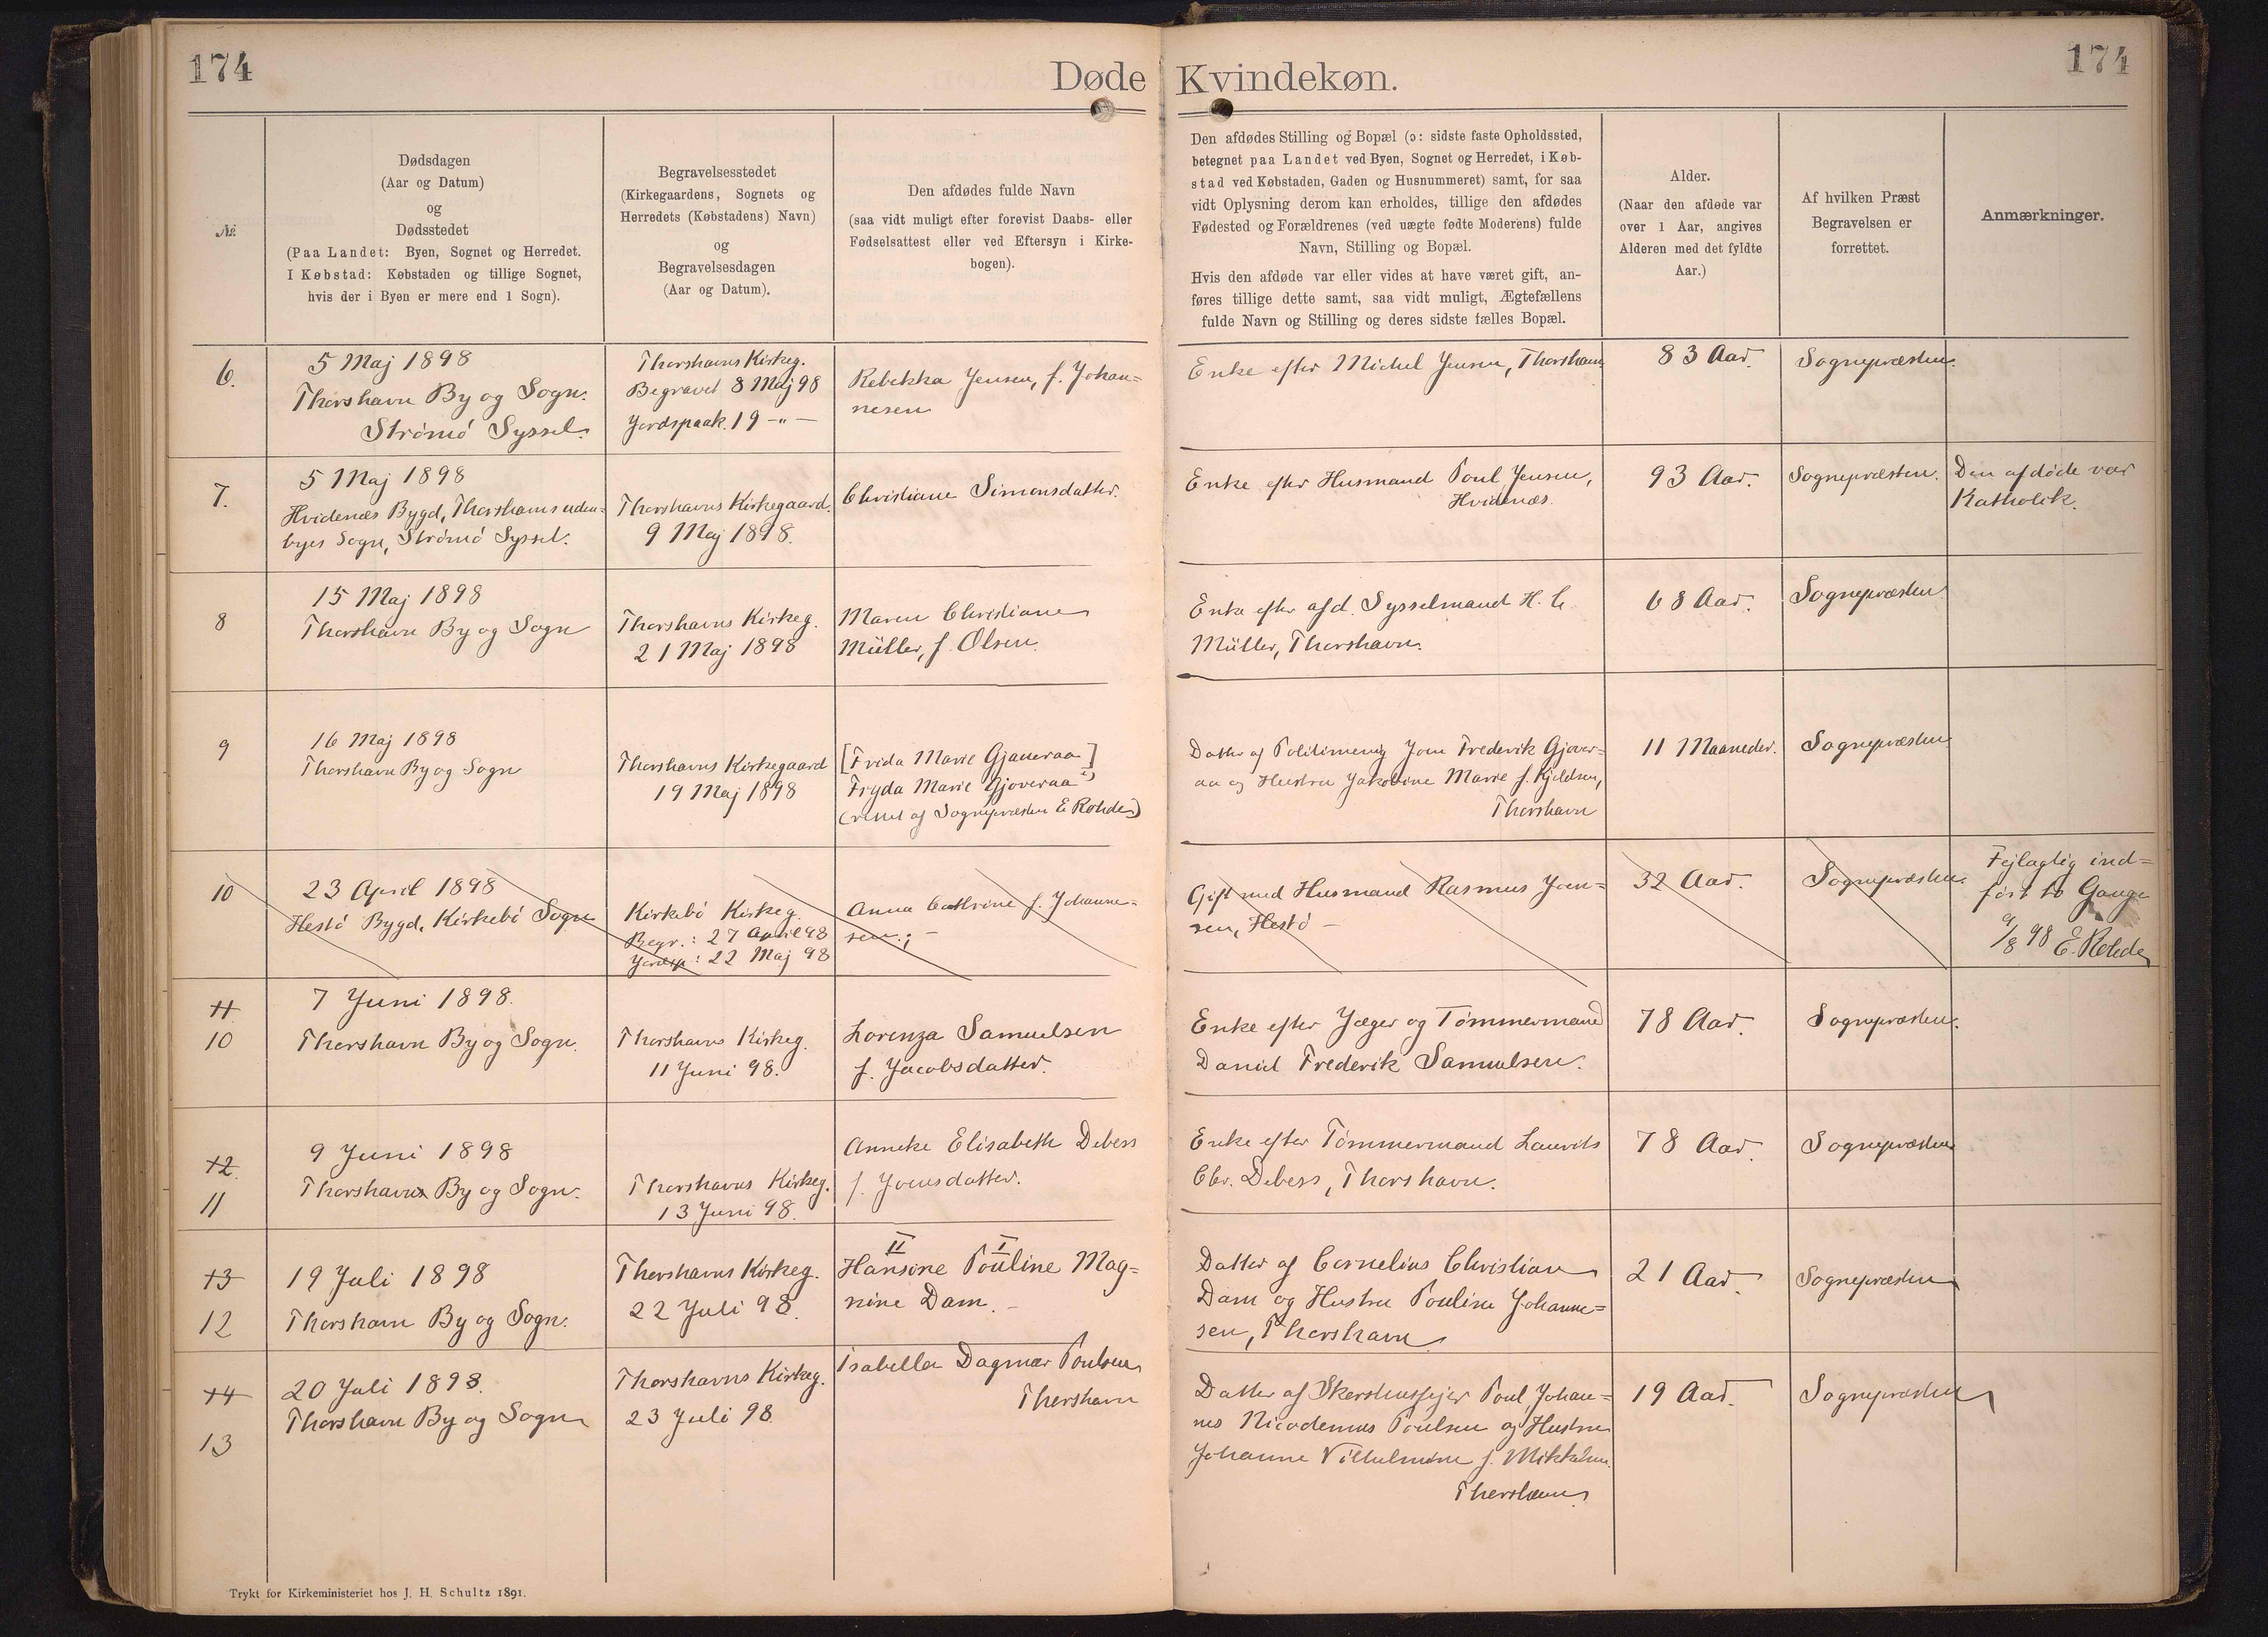 174
Døde Kvindekøn.
174
№
Dødsdagen
(Aar og Datum)
og
Dødsstedet
(Paa Landet: Byen, Sognet og Herredet.
I Købstad: Købstaden og tillige Sognet,
hvis der i Byen er mere end 1 Sogn).
Begravelsesstedet
(Kirkegaardens, Sognets og
Herredets (Købstadens) Navn)
og
Begravelsesdagen
(Aar og Datum).
Den afdødes fulde Navn
(saa vidt muligt efter forevist Daabs- eller
Fødselsattest eller ved Eftersyn i Kirke-
bogen).
Den afdødes Stilling og Bopæl (ɔ: sidste faste Opholdssted,
betegnet paa Landet ved Byen, Sognet og Herredet, i Køb-
stad ved Købstaden, Gaden og Husnummeret) samt, for saa
vidt Oplysning derom kan erholdes, tillige den afdødes
Fødested og Forældrenes (ved uægte fødte Moderens) fulde
Navn, Stilling og Bopæl.
Hvis den afdøde var eller vides at have været gift, an-
føres tillige dette samt, saa vidt muligt, Ægtefællens
fulde Navn og Stilling og deres sidste fælles Bopæl.
Alder.
(Naar den afdøde var
over 1 Aar, angives
Alderen med det fyldte
Aar.)
Af hvilken Præst
Begravelsen er
forrettet.
Anmærkninger.
6.
5 Maj 1898
Thorshavn By og Sogn.
Strömö Syssel.
Thorshavns Kirkeg.
Begravet 8 Maj 98
Jordspaak. 19 -"-
Rebekka Jensen, f. Johan=
nesen
Enke efter Michel Jensen, Thorshavn
83 Aar.
Sognepræsten.
7.
5 Maj 1898
Hvidenæs Bygd, Thorshavns uden=
byes Sogn, Strömö Syssel.
Thorshavns Kirkegaard.
9 Maj 1898.
Christiane Simonsdatter.
Enke efter Husmand Poul Jensen,
Hvidenæs.
93 Aar.
Sognepræsten.
Den afdöde var
Katholik.
8
15 Maj 1898
Thorshavn By og Sogn
Thorshavns Kirkeg.
21 Maj 1898
Maren Christiane
Müller, f. Olsen.
Enke efter afd. Sysselmand H. C.
Müller, Thorshavn.
68 Aar.
Sognepræsten
9
16 Maj 1898
Thorshavn By og Sogn
Thorshavns Kirkegaard
19 Maj 1898
[Frida Marie Gjaveraa]
Fryda Marie Gjoveraa
(rettet af Sognepræsten E. Rohde)
Datter af Politimenig Joen Frederik Gjover=
aa og Hustru Jakobine Marie f. Kjeldsen,
Thorshavn
11 Maaneder.
Sognepræsten
10
23 April 1898
Hestö Bygd, Kirkebö Sogn
Kirkebö Kirkeg.
Begr.: 27 April 98
Jordsp: 22 Maj 98
Anna Cathrine f. Johanne=
sen.; -
Gift med Husmand Rasmus Joen=
sen, Hestö -
32 Aar.
Sognepræsten.
Fejlagtig ind=
fört to Gange
9/8 98 E. Rohde
11
10
7 Juni 1898.
Thorshavn By og Sogn.
Thorshavns Kirkeg.
11 Juni 98.
Lorenza Samuelsen
f. Jacobsdatter.
Enke efter Jæger og Tömmermand
Daniel Frederik Samuelsen.
78 Aar.
Sognepræsten.
12.
11
9 Juni 1898
Thorshavns By og Sogn.
Thorshavns Kirkeg.
13 Juni 98.
Anneke Elisabeth Debess
f. Joensdatter.
Enke efter Tömmermand Laurits
Chr. Debess, Thorshavn.
78 Aar.
Sognepræsten
13
12
19 Juli 1898
Thorshavn By og Sogn.
Thorshavns Kirkeg.
22 Juli 98.
II I
Hansine Pouline Mag=
nine Dam. -
Datter af Cornelius Christian
Dam og Hustru Pouline Johanne=
sen, Thorshavn
21 Aar
Sognepræsten
14
13
20 Juli 1898.
Thorshavn By og Sogn
Thorshavns Kirkeg.
23 Juli 98
Isabella Dagmar Poulsen
Thorshavn
Datter af Poul Johan=
nes Nicodemus Poulsen og Hustru
Johanne Vilhelmine f. Mikkelsen.
Thorshavn
19 Aar.
Sognepræsten
Trykt for Kirkeministeriet hos J. H. Schultz 1891.